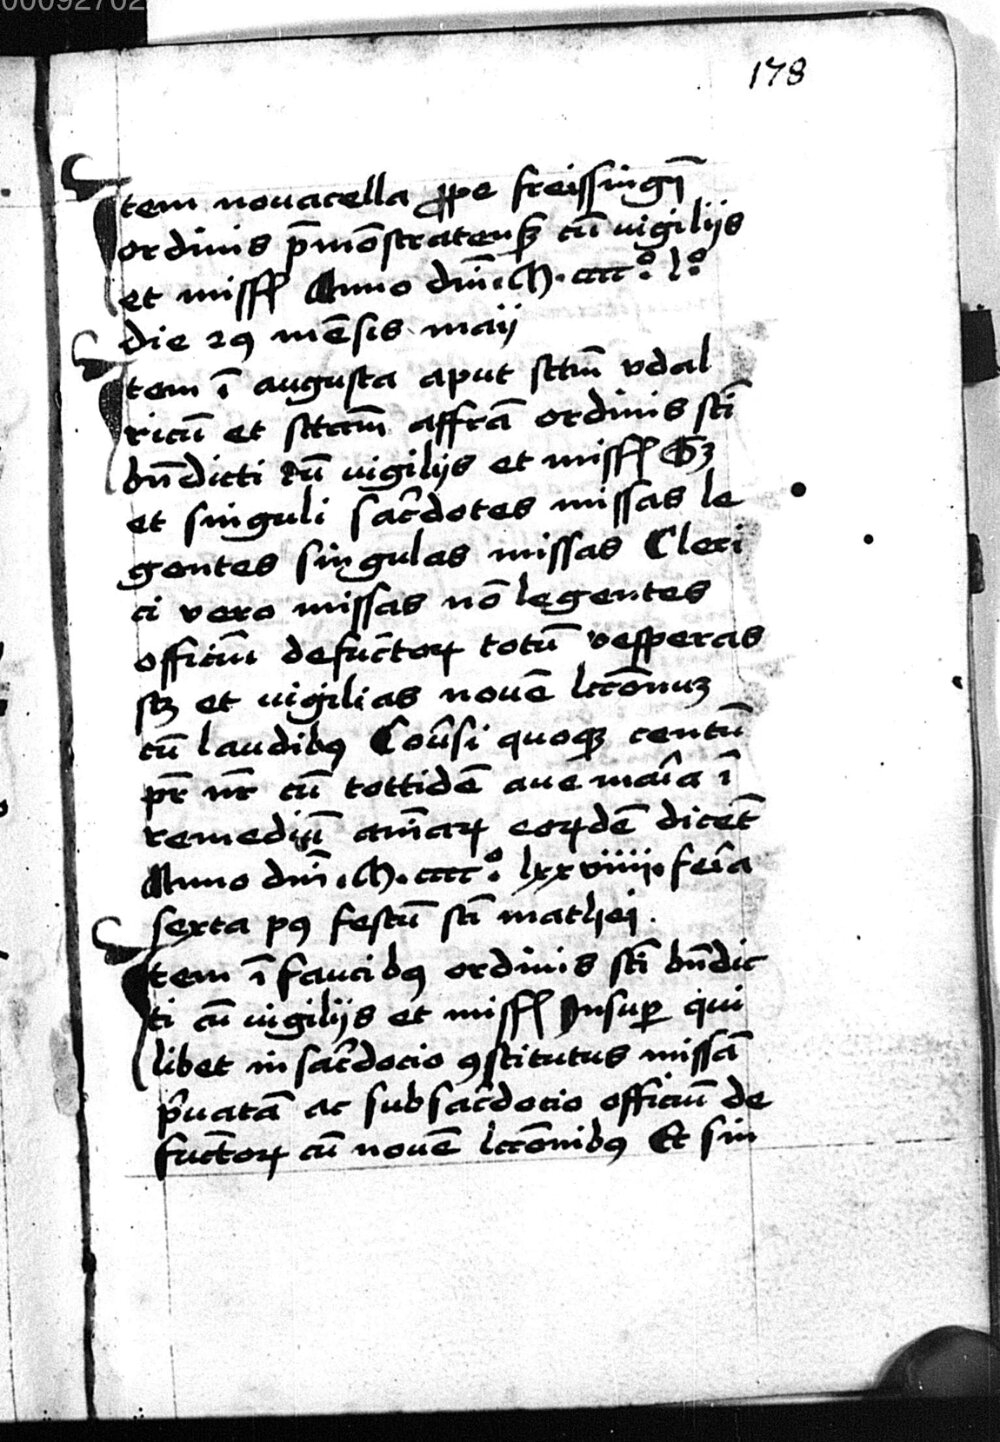 00092702
178
Item nouacella ꝓpe freissingē
ordinis p̄mōstratenſꝫ cū vigilijs
et missꝭ Anno dm̄i · M · cccc° · l°
die 29 mēsis maij
Item ī augusta aput sctm̄ vdal
ricū et sctam̄ affrā ordinis sct̄i
bn̄dicti cū vigilijs et missꝭ
et singuli sac̄dotes missas le
gentes singulas missas Cleri
ci vero missas nō legentes
officiū defuc̄toꝝ totū vesperas
sꝫ et vigilias nouē lcc̄onuꝫ
cū laudibꝰ Cōuˀsi quoqꝫ centū
pr̄ nr̄ cū tottidē aue mar̄ia ī
remediū ai̅aꝝ eoꝝdē dicēt
Anno dm̄i · M · cccc° · lxxviiii · fer̄ia
sexta pꝰ festū sct̄i mathei ·
Item ī faucibꝰ ordinis sct̄i bn̄dic
ti cū vigilijs et missꝭ Insuꝑ qui
libet in sac̄docio ꝯstitutus missā
p̄uatā ac subsac̄docio officiū de
fuc̄toꝝ cū nouē lcc̄onibꝰ Et sin